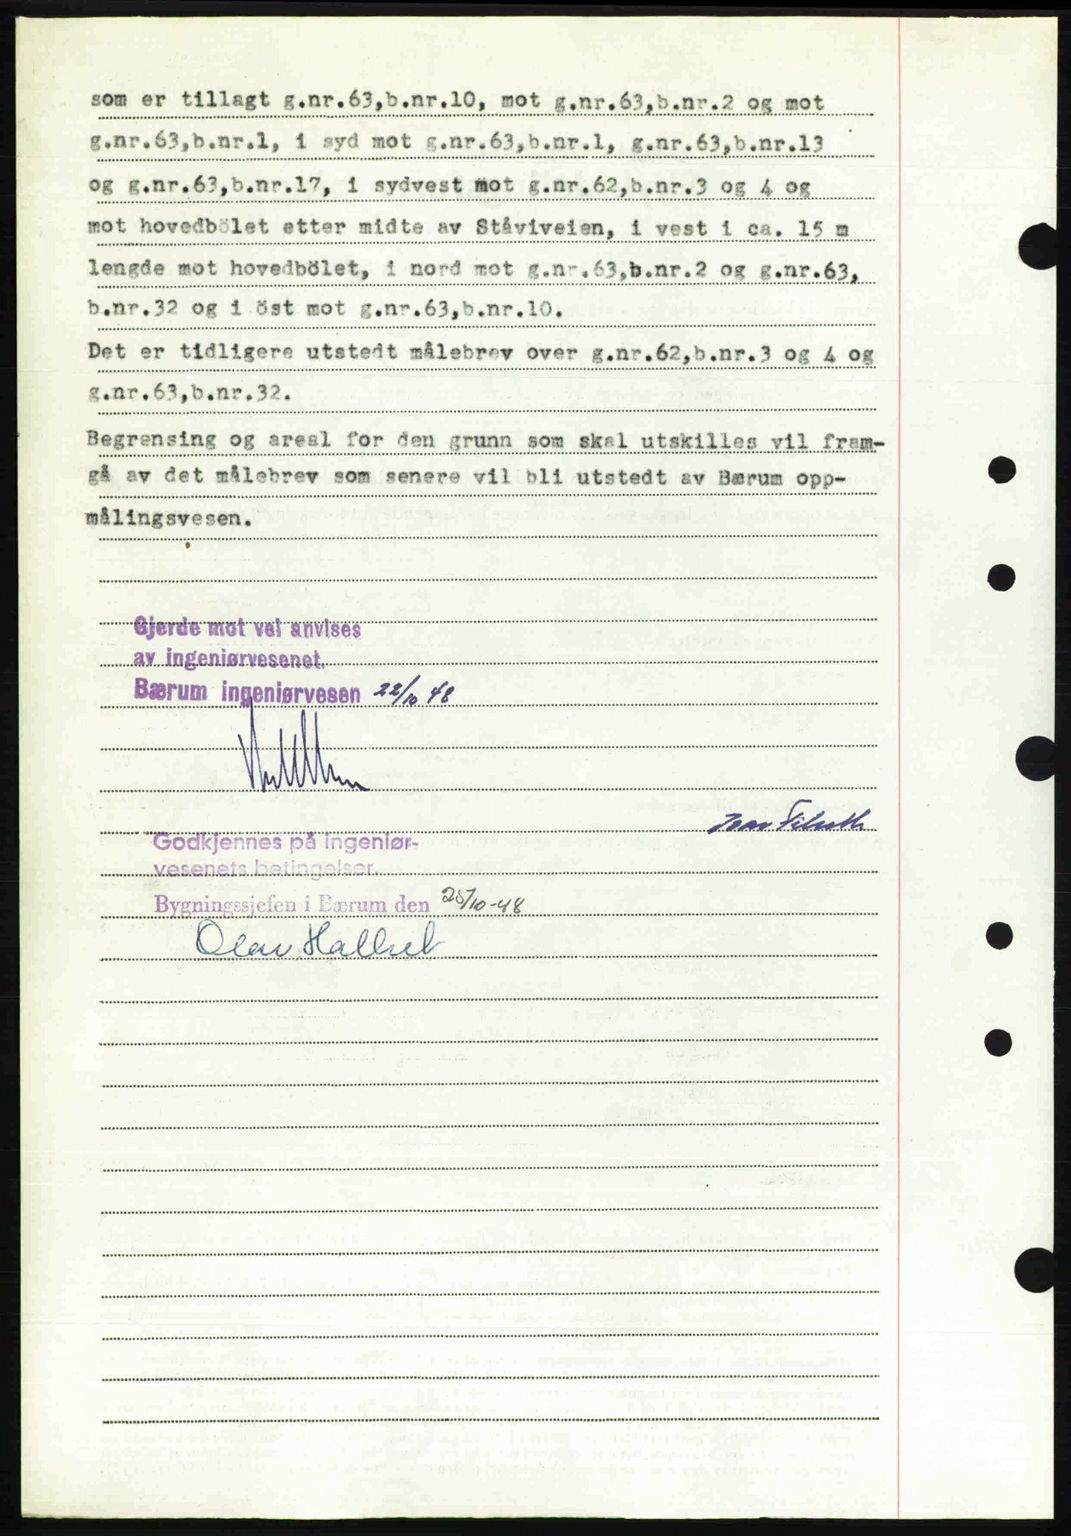 som er tillagt g.nr.63,b.nr.10, mot g.nr.63,b.nr.2 og mot
g.nr.63,b.nr.1, i syd mot g.nr.63,b.nr.1, g.nr.63,b.nr.13
og g.nr.63,b.nr.17, i sydvest mot g.nr.62,b.nr.3 og 4 og
mot hovedbölet etter midte av Ståviveien, i vest i ca. 15 m
lengde mot hovedbölet, i nord mot g.nr.63,b.nr.2 og g.nr.63,
b.nr.32 og i öst mot g.nr.63,b.nr.10.
Det er tidligere utstedt målebrev over g.nr.62,b.nr.3 og 4 og
g.nr.63,b.nr.32.
Begrensing og areal for den grunn som skal utskilles vil fram-
gå av det målebrev som senere vil bli utstedt av Bærum opp-
målingsvesen.
Gjerde mot vei anvises
av ingeniørvesenet.
Bærum ingeniørvesen 22/10 48
Godkjennes på ingeniør-
vesenets betingelser.
Bygningssjefen i Bærum den 25/10-48
Olav Halset